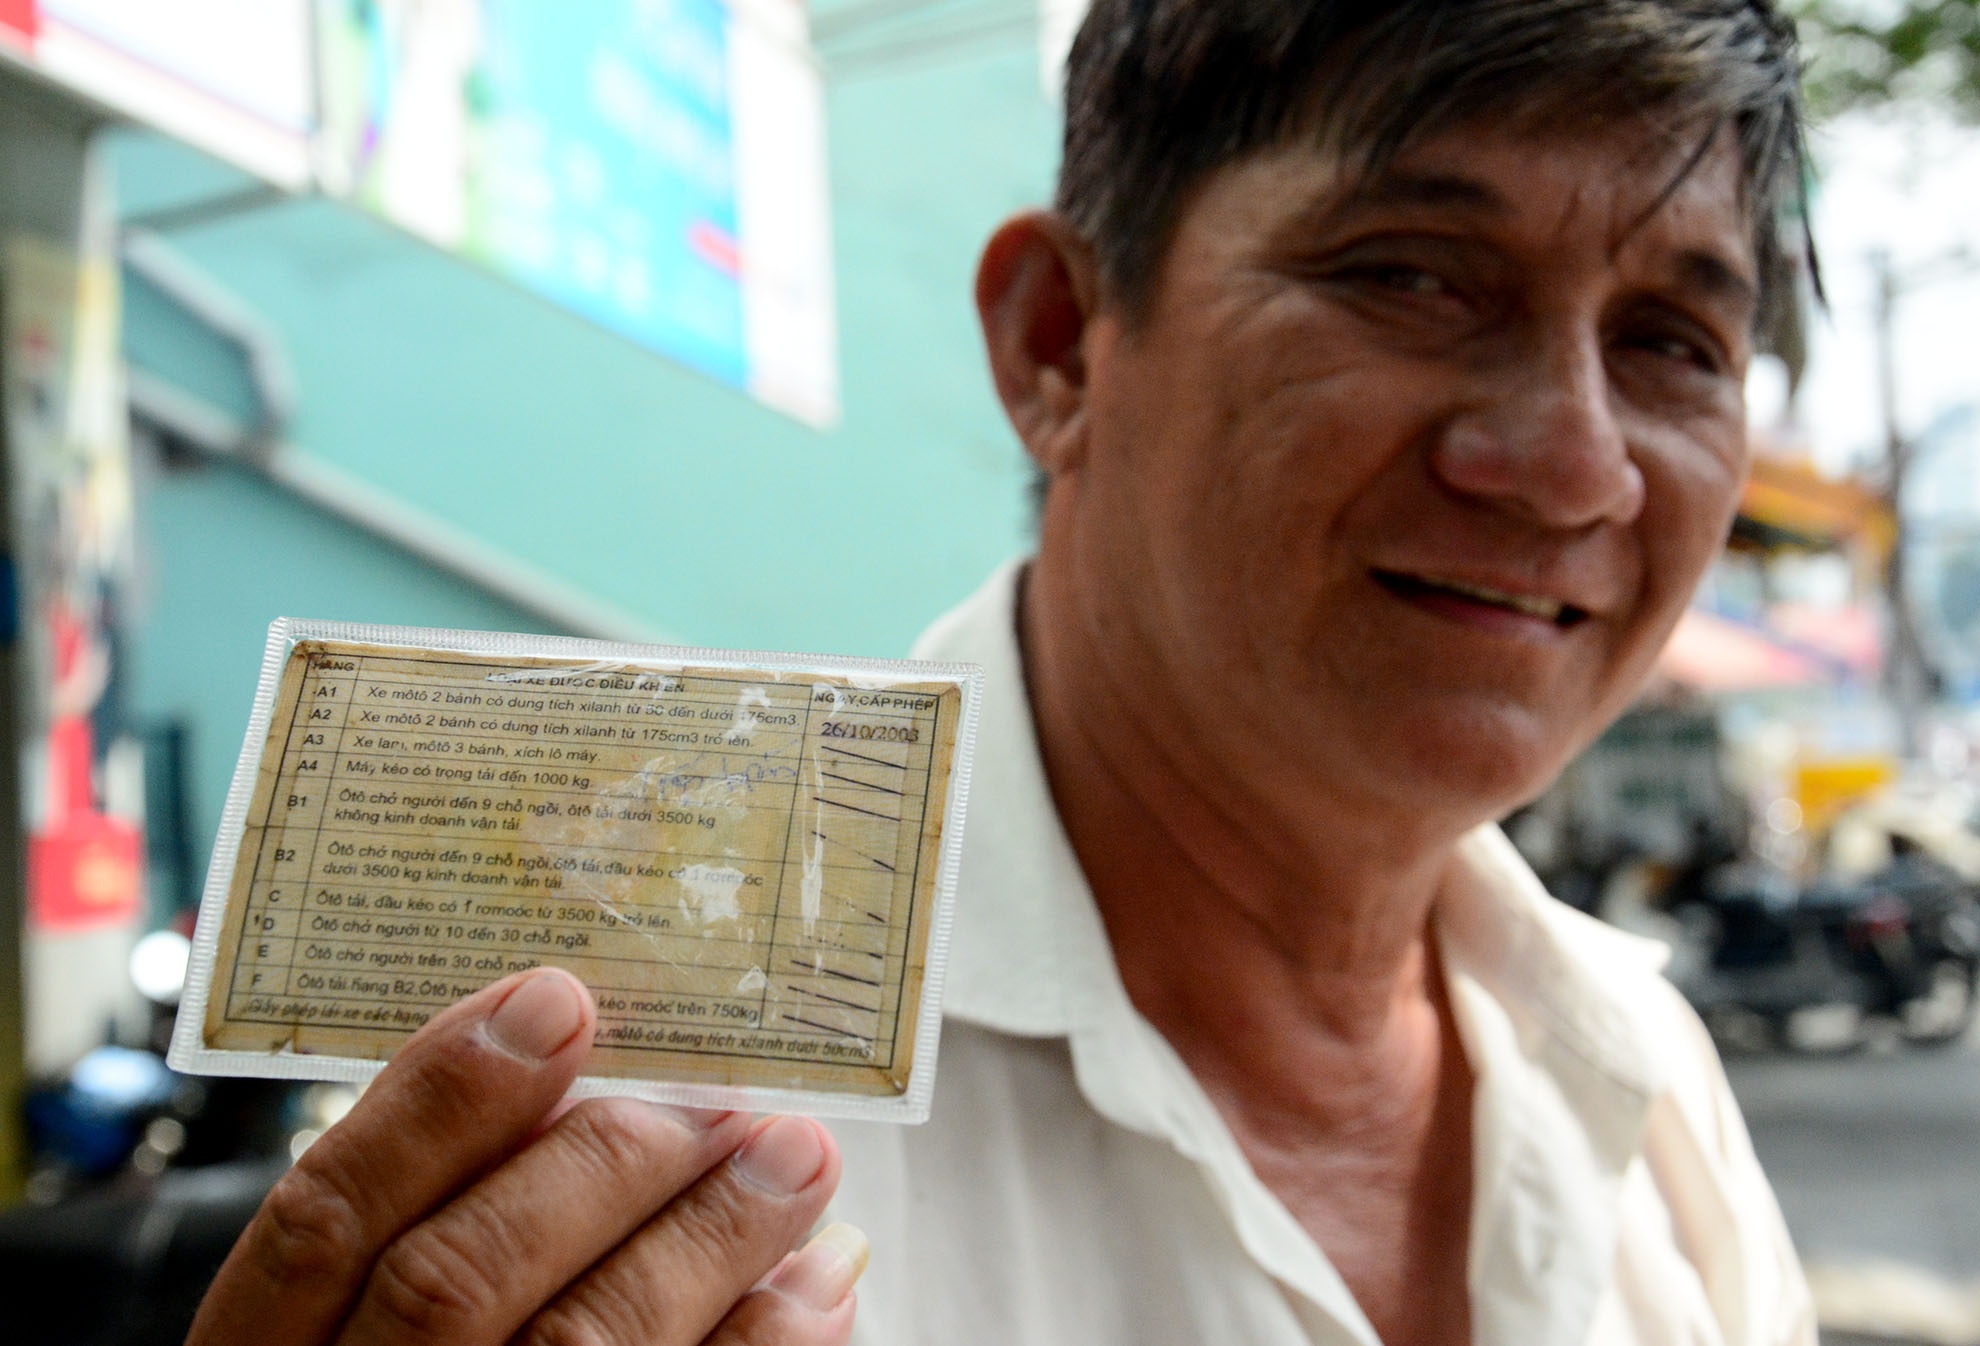 HẠNG LOẠI XE ĐƯỢC ĐIỀU KHIỂN NGÀY CẤP PHÉP
A1 Xe môtô 2 bánh có dung tích xilanh từ 50 đến dưới 175cm3. 26/10/2003
A2 Xe môtô 2 bánh có dung tích xilanh từ 175cm3 trở lên.
A3 Xe lam, môtô 3 bánh, xích lô máy.
A4 Máy kéo có trọng tải đến 1000 kg.
B1 Ôtô chở người đến 9 chỗ ngồi, ôtô tải dưới 3500 kg
không kinh doanh vận tải.
B2 Ôtô chở người đến 9 chỗ ngồi,ôtô tải,đầu kéo có 1 rơmoóc
dưới 3500 kg kinh doanh vận tải.
C Ôtô tải, đầu kéo có 1 rơmoóc từ 3500 kg trở lên.
D Ôtô chở người từ 10 đến 30 chỗ ngồi.
E Ôtô chở người trên 30 chỗ ngồi
F Ôtô tải hạng B2,Ôtô kéo moóc trên 750kg
Giấy phép lái xe các hạng môtô có dung tích xilanh dưới 50cm3